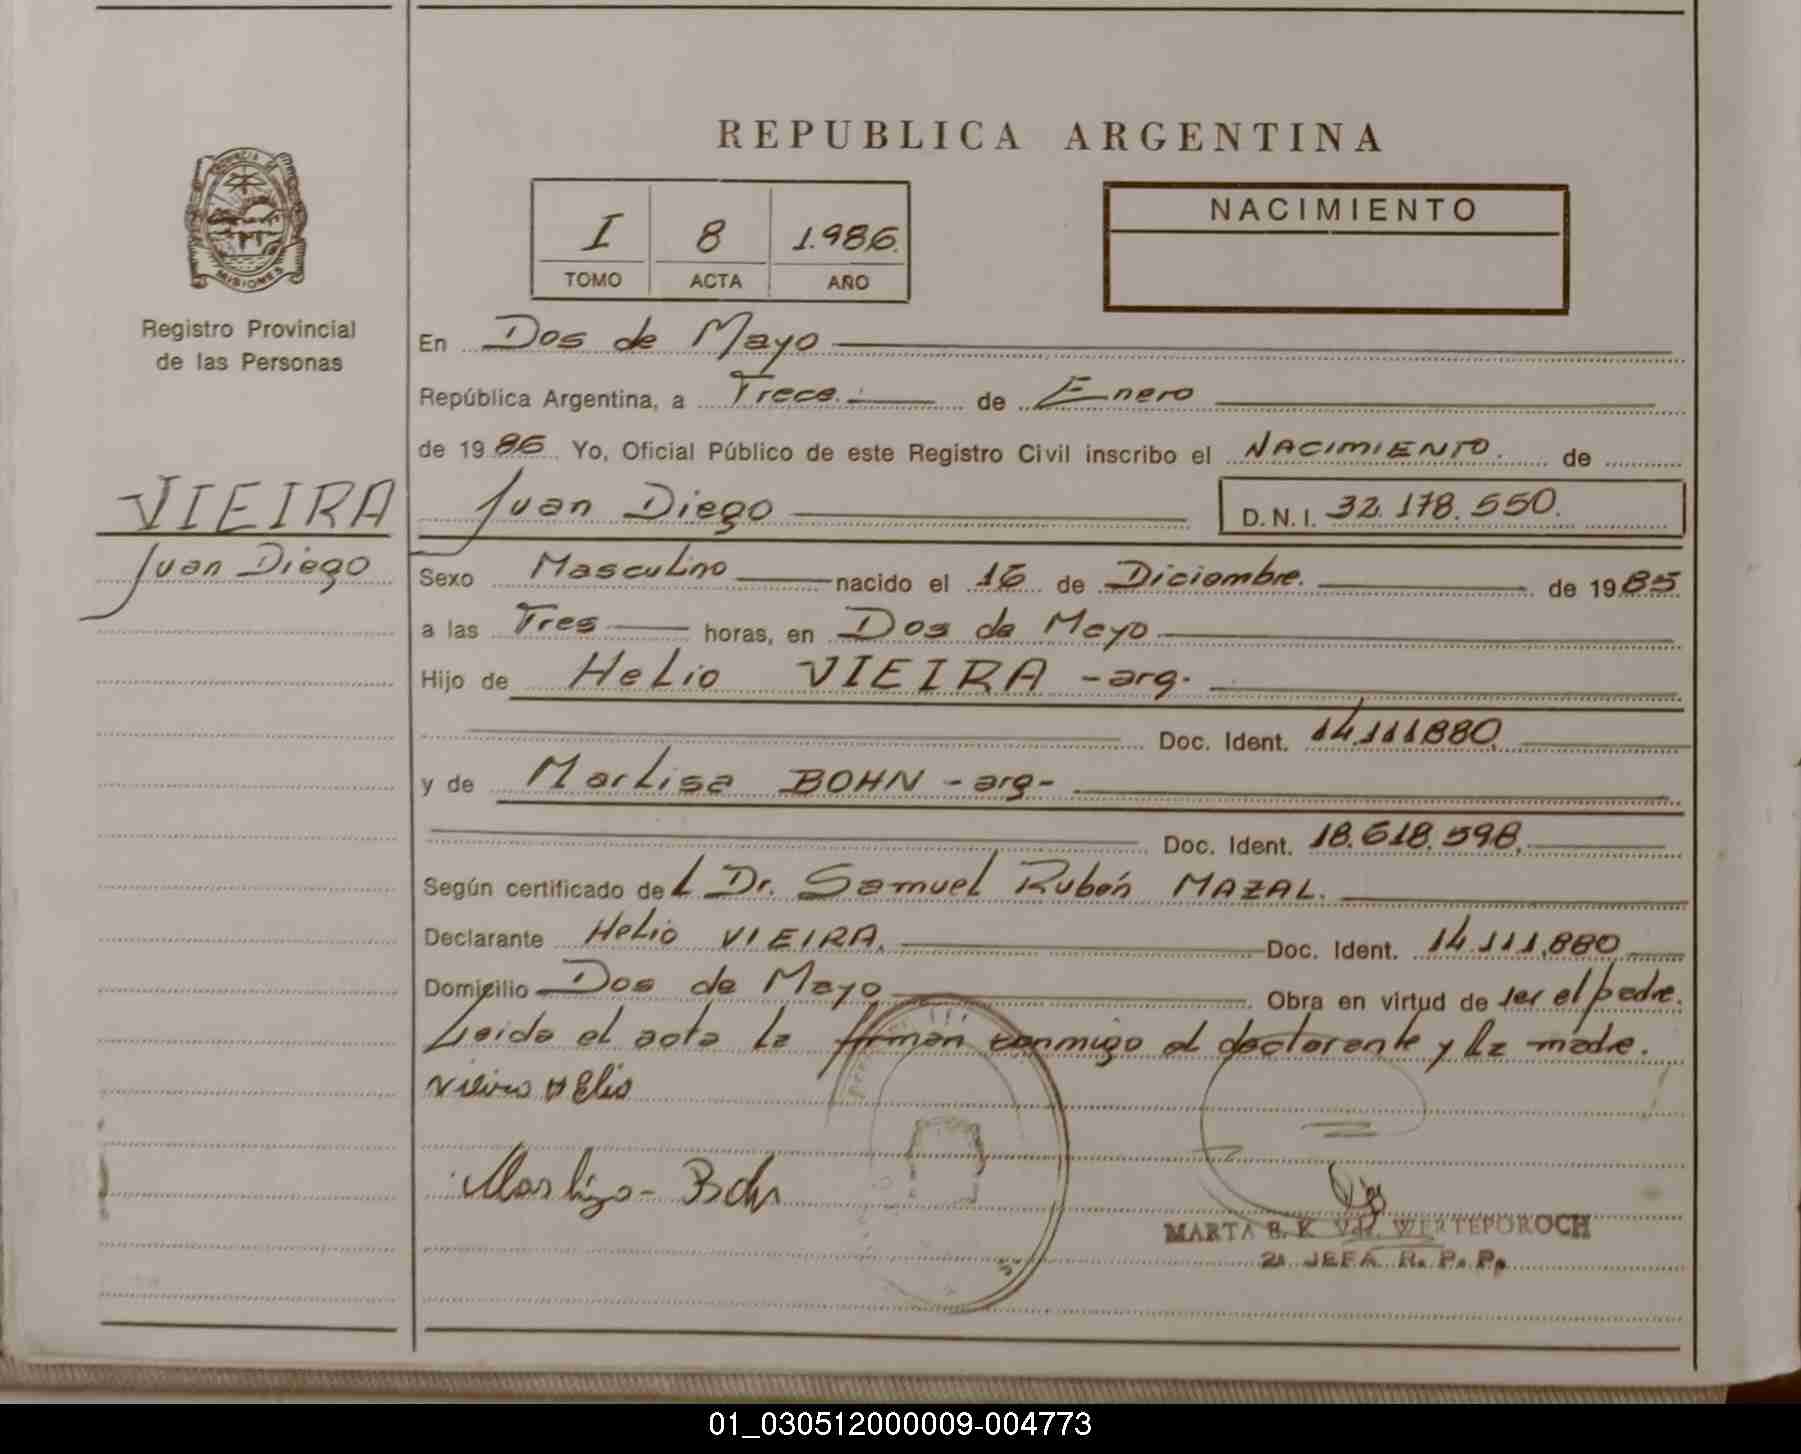 REPUBLICA ARGENTINA
PROVINCIA DE
MISIONES
Registro Provincial
de las Personas
I 8 1.986.
TOMO ACTA AÑO
NACIMIENTO
En Dos de Mayo
República Argentina, a Trece.- de Enero
de 1986 Yo, Oficial Público de este Registro Civil inscribo el NACIMIENTO. de
VIEIRA
Juan Diego
Juan Diego D.N.I. 32.178.550.
Sexo Masculino nacido el 16 de Diciembre. de 1985
a las Tres horas, en Dos de Mayo
Hijo de Helio VIEIRA -arg.
Doc. Ident. 14.111.880.
y de Marlisa BOHN -arg-
Doc. Ident. 18.618.598.
Según certificado del Dr. Samuel Rubén MAZAL.
Declarante Helio VIEIRA. Doc. Ident. 14.111.880
Domicilio Dos de Mayo Obra en virtud de ser el padre.
Leida el acta la firman conmigo el declarante y la madre.
Vieira Helio
Marliza - Bohn
MARTA E. K. Vda. WERTEPOROCH
2a JEFA R. P. P.
01_030512000009-004773